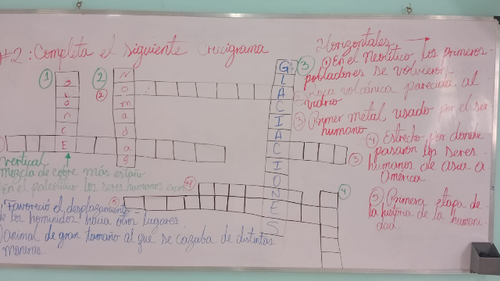 #2: Completa el siguiente Crucigrama
1
2
2
3
BRONCE
Nomadas
GLACIACIONES
Horizontales
1 En el Neolítico los primeros
pobladores se volvieron
Roca volcánica parecida al
vidrio
3 Primer metal usado por el ser
humano
4 Estrecho por donde
pasaron los seres
humanos de asia a
América
5 Primera etapa de
la historia de la humani
dad
3
4
4
5
vertical
mezcla de cobre más estaño
En el paleolítico los seres humanos eran
Favoreció el desplazamiento
de los homínidos hacia otros lugares
animal de gran tamaño al que se cazaba de distintas
maneras.